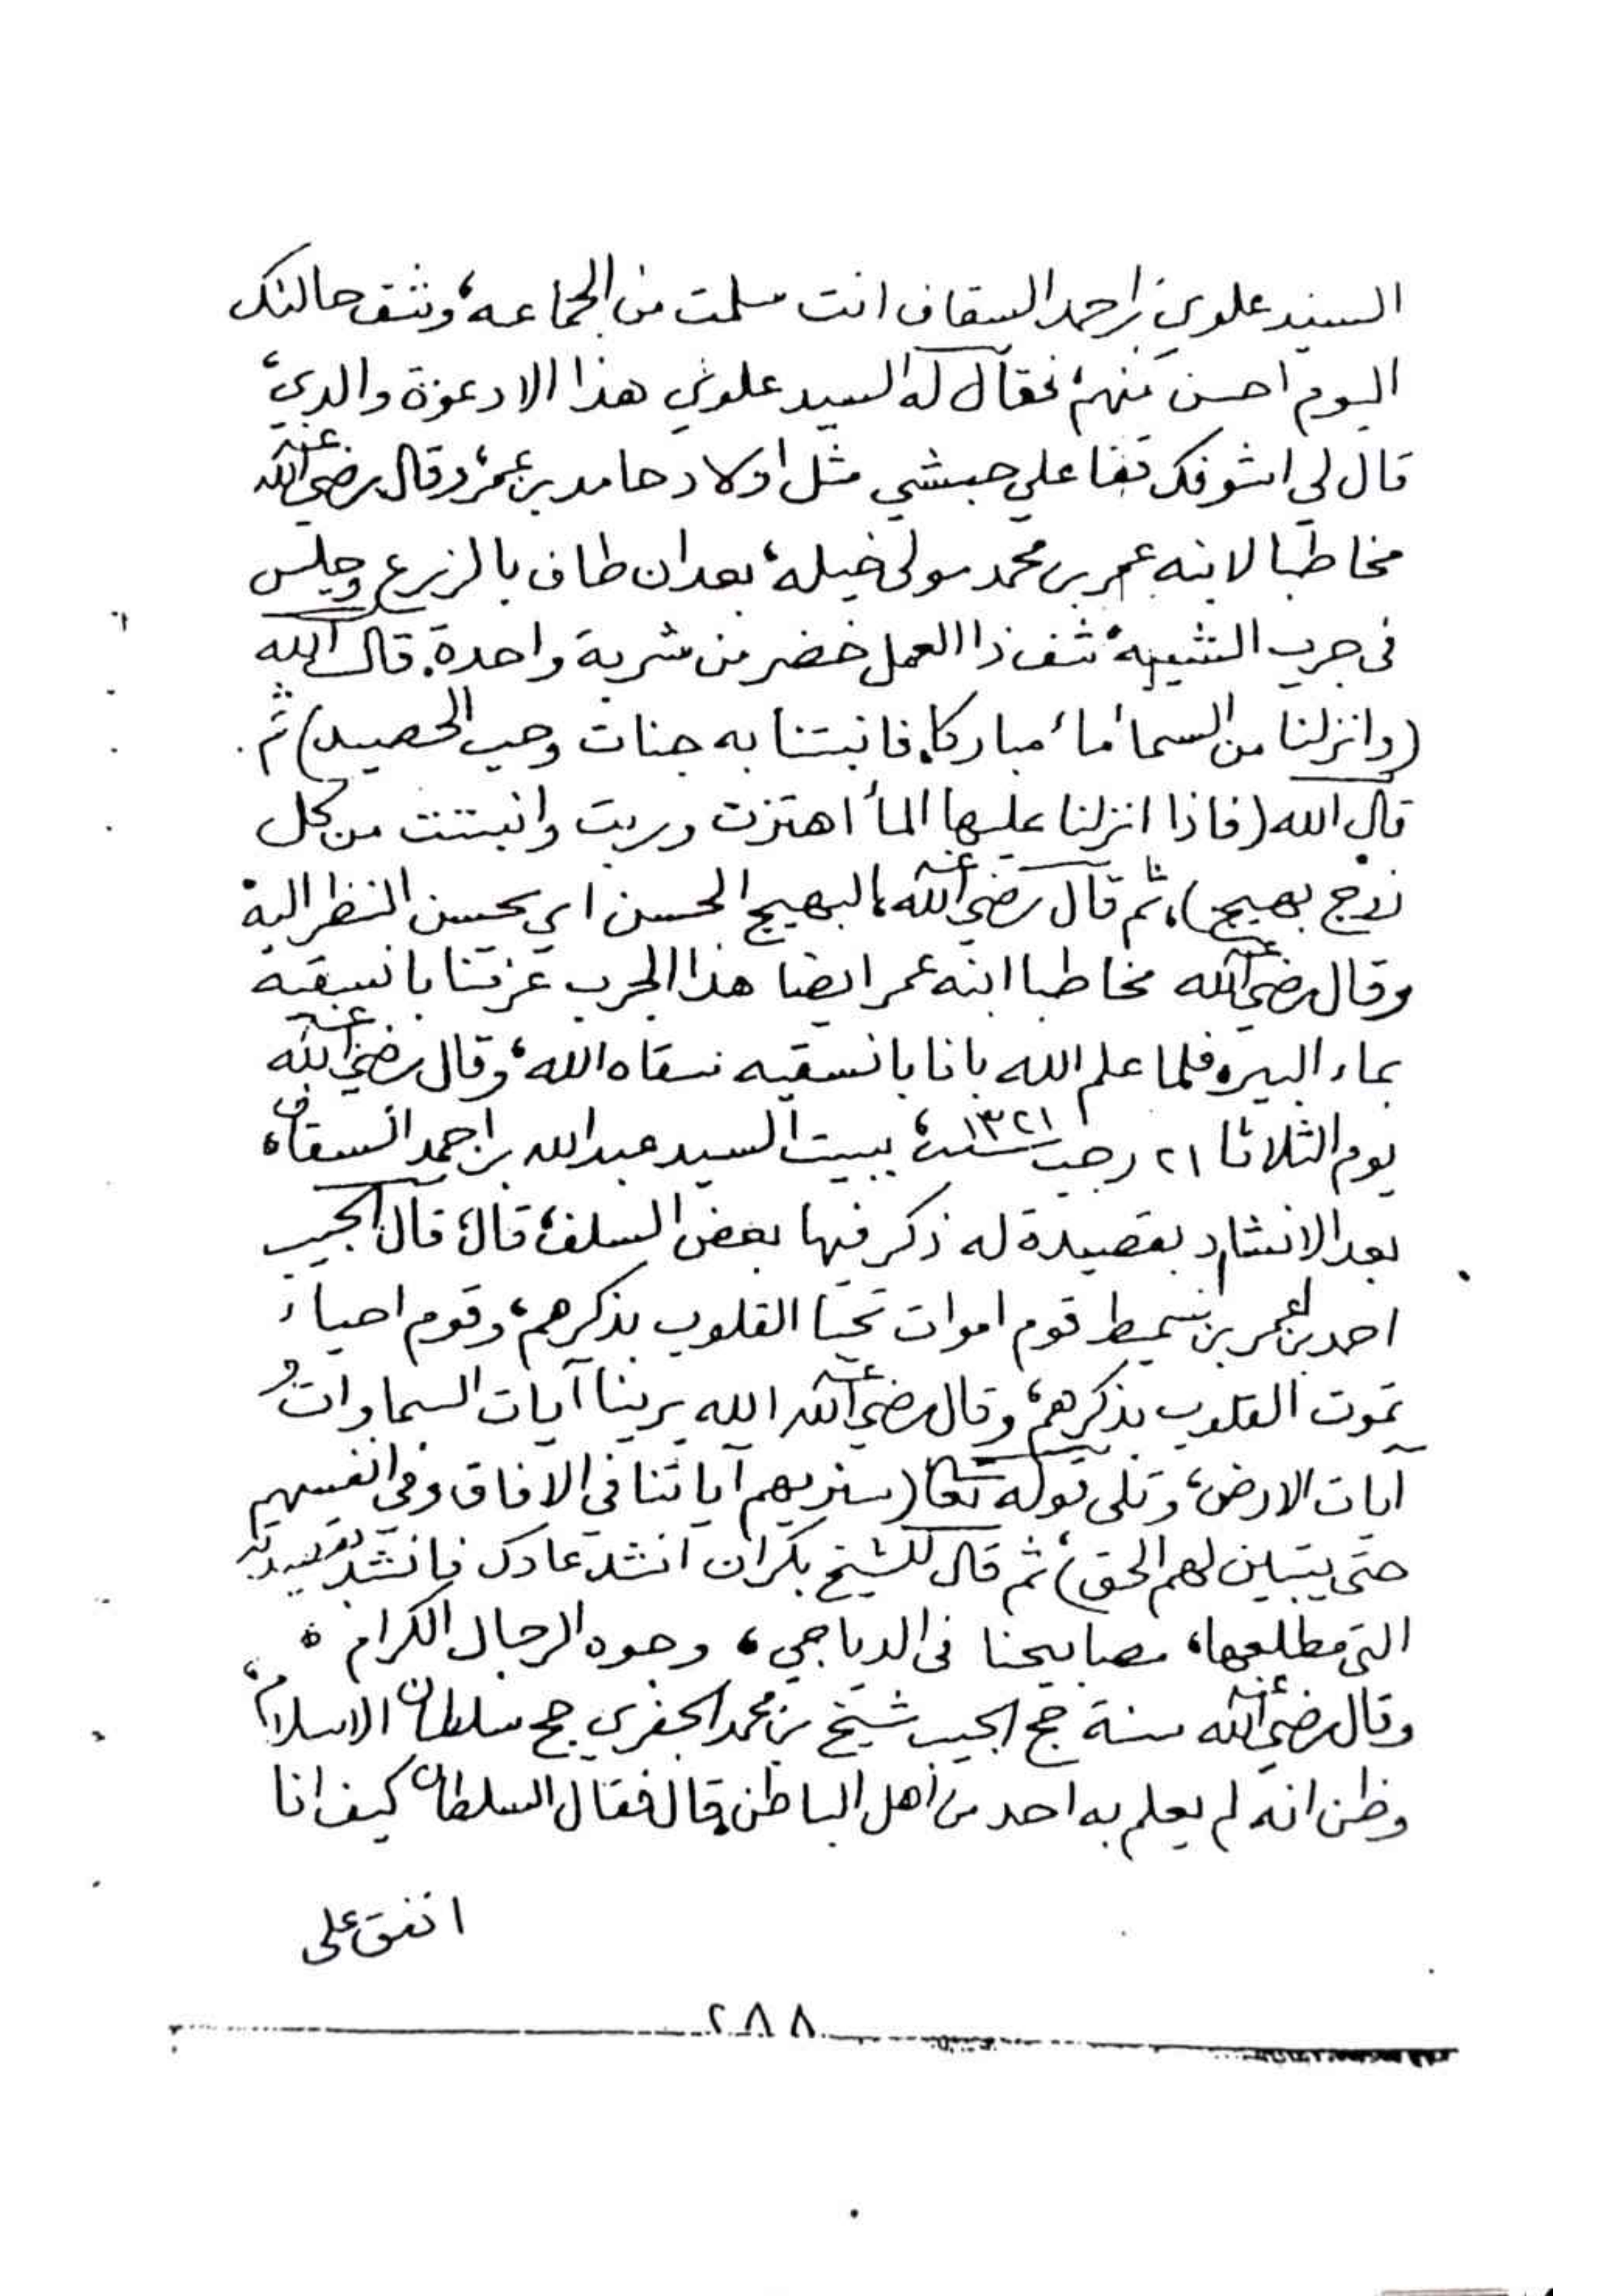 السيد علوي بن احمد السقاف انت سلمت من الجماعه، وشف حالتك
اليوم احسن منهم، فقال له السيد علوي هذا الا دعوة والدي،
قال لي اشوفك تقفا علي حبشي مثل اولاد حامد بن عمر، وقال رضي الله عنه
مخاطبا لابنه عمر بن محمد مولى خيله، بعد ان طاف بالزرع وجلس
في جرب الشعبه، شف ذا العمل خضر من شربة واحدة. قال الله
(وانزلنا من السماء ماء مباركا، فانبتنا به جنات وحب الحصيد) ثم
قال الله (فاذا انزلنا عليها الماء اهتزت وربت وانبتت من كل
زوج بهيج)، ثم قال رضي الله عنه، البهيج الحسن اي يحسن النظر اليه
وقال رضي الله عنه مخاطبا ابنه عمر ايضا هذا الجرب عزمنا بانسقيه
بماء البير، فلما علم الله بانا بانسقيه سقاه الله، وقال رضي الله عنه
يوم الثلاثا ٢١ رجب سنة ١٣٢١، ببيت السيد عبدالله بن احمد السقاف،
بعد الانشاد بقصيدة له ذكر فيها بعض السلف، قال، قال الحبيب
احمد بن عمر بن سميط قوم اموات تحيا القلوب بذكرهم، وقوم احياء
تموت القلوب بذكرهم، وقال رضي الله عنه الله يرينا آيات السماوات و
آيات الارض، وتلى قوله تعا (سنريهم آياتنا في الافاق وفي انفسهم
حتى يتبين لهم الحق)، ثم قال للشيخ بكران انشد عادك فانشد بقصيدته
التي مطلعها، مصابيحنا في الدياجي، وجوه الرجال الكرام ه
وقال رضي الله عنه سنة حج الحبيب شيخ بن محمد الجفري حج سلطان الاسلام،
وظن انه لم يعلم به احد من اهل الباطن، قال فقال السلطان كيف انا
انفق على
٢٨٨